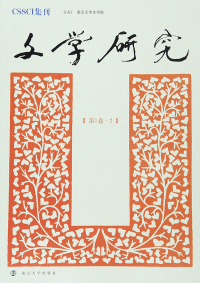 CSSCI集刊
主办| 南京大学文学院
文学研究
【第3卷·2】
南京大学出版社